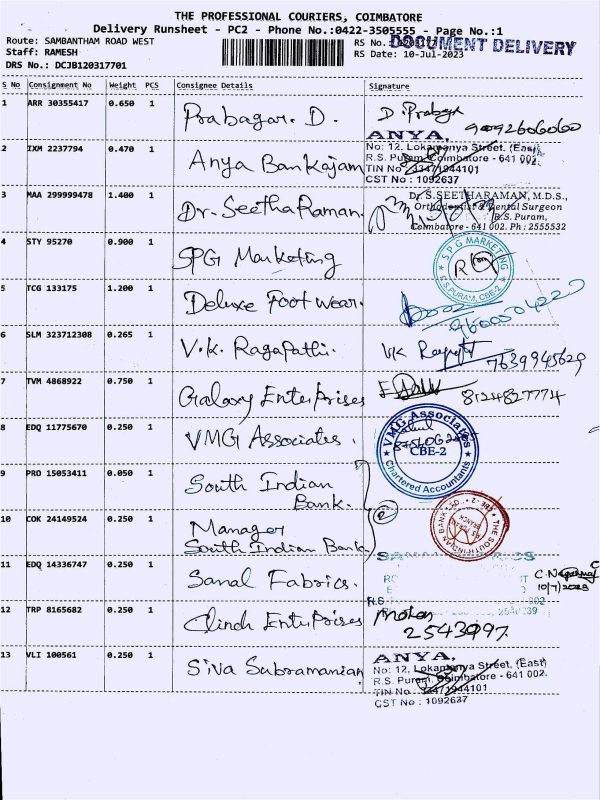 THE PROFESSIONAL COURIERS, COIMBATORE
Delivery Runsheet - PC2 - Phone No.:0422-3505555 - Page No.:1
Route: SAMBANTHAM ROAD WEST
RS No.:
DOCUMENT DELIVERY
Staff: RAMESH
RS Date: 10-Jul-2023
DRS No.: DCJB120317701
S No Consignment No Weight PCS Consignee Details Signature
1 ARR 30355417 0.650 1 Prabagar. D. D. Prabagar
9092606060
2 IXM 2237794 0.470 1 Anya Bankajam
ANYA,
No: 12, Lokamanya Street, (East),
R.S. Puram, Coimbatore - 641 002.
TIN No 33471944101
CST No : 1092637
3 MAA 299999478 1.400 1 Dr. SeethaRaman.
Dr. S.SEETHARAMAN, M.D.S.,
Orthodontist & Dental Surgeon
R.S. Puram,
Coimbatore - 641 002. Ph : 2555532
4 STY 95270 0.900 1 SPG Marketing
SPG MARKETING
R.S PURAM, CBE-2
5 TCG 133175 1.200 1 Deluxe Foot wear.
9600504220
6 SLM 323712308 0.265 1 V.K. Ragapathi.
VK
7639945629
7 TVM 4868922 0.750 1 Galaxy Enterprises
8124827774
8 EDQ 11775670 0.250 1 VMG Associates.
VMG Associates
CBE-2
Chartered Accountants
9 PRO 15053411 0.050 1 South Indian
Bank.
10 COK 24149524 0.250 1 Manager
South Indian Bank
THE SOUTH INDIAN BANK
11 EDQ 14336747 0.250 1 Sanal Fabrics.
10/7/2023
12 TRP 8165682 0.250 1 Clinch Enterprises
Mohan
2543097.
13 VLI 100561 0.250 1 Siva Subramanian
ANYA,
No: 12, Lokamanya Street, (East)
R.S. Puram, Coimbatore - 641 002.
TIN No : 33471944101
CST No : 1092637